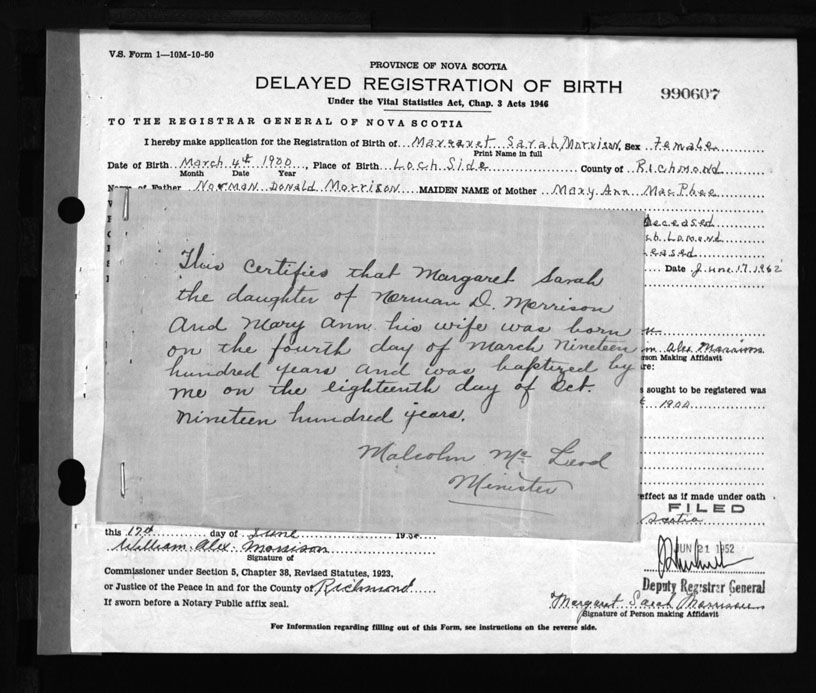 V.S. Form 1—10M-10-50
PROVINCE OF NOVA SCOTIA
DELAYED REGISTRATION OF BIRTH
990607
Under the Vital Statistics Act, Chap. 3 Acts 1946
TO THE REGISTRAR GENERAL OF NOVA SCOTIA
I hereby make application for the Registration of Birth of Margaret Sarah Morrison, Sex Female
Print Name in full
Date of Birth March 4th 1900, Place of Birth Loch Side County of Richmond
Month Date Year
Name of Father Norman Donald Morrison MAIDEN NAME of Mother Mary Ann MacPhee
deceased
Lomond
Date June 17, 1952
This certifies that Margaret Sarah
the daughter of Norman D. Morrison
and Mary Ann his wife was born
on the fourth day of March Nineteen
hundred years and was baptized by
me on the eighteenth day of Oct.
nineteen hundred years.
Malcolm McLeod
Minister
Alex Morrison
Person Making Affidavit
sought to be registered was
1900
effect as if made under oath
FILED
Scotia
this 17th day of June
William Alex. Morrison
Signature of
JUN 21 1952
Commissioner under Section 5, Chapter 38, Revised Statutes, 1923,
Deputy Registrar General
or Justice of the Peace in and for the County of Richmond
If sworn before a Notary Public affix seal.
Margaret Sarah Morrison
Signature of Person making Affidavit
For Information regarding filling out of this Form, see instructions on the reverse side.